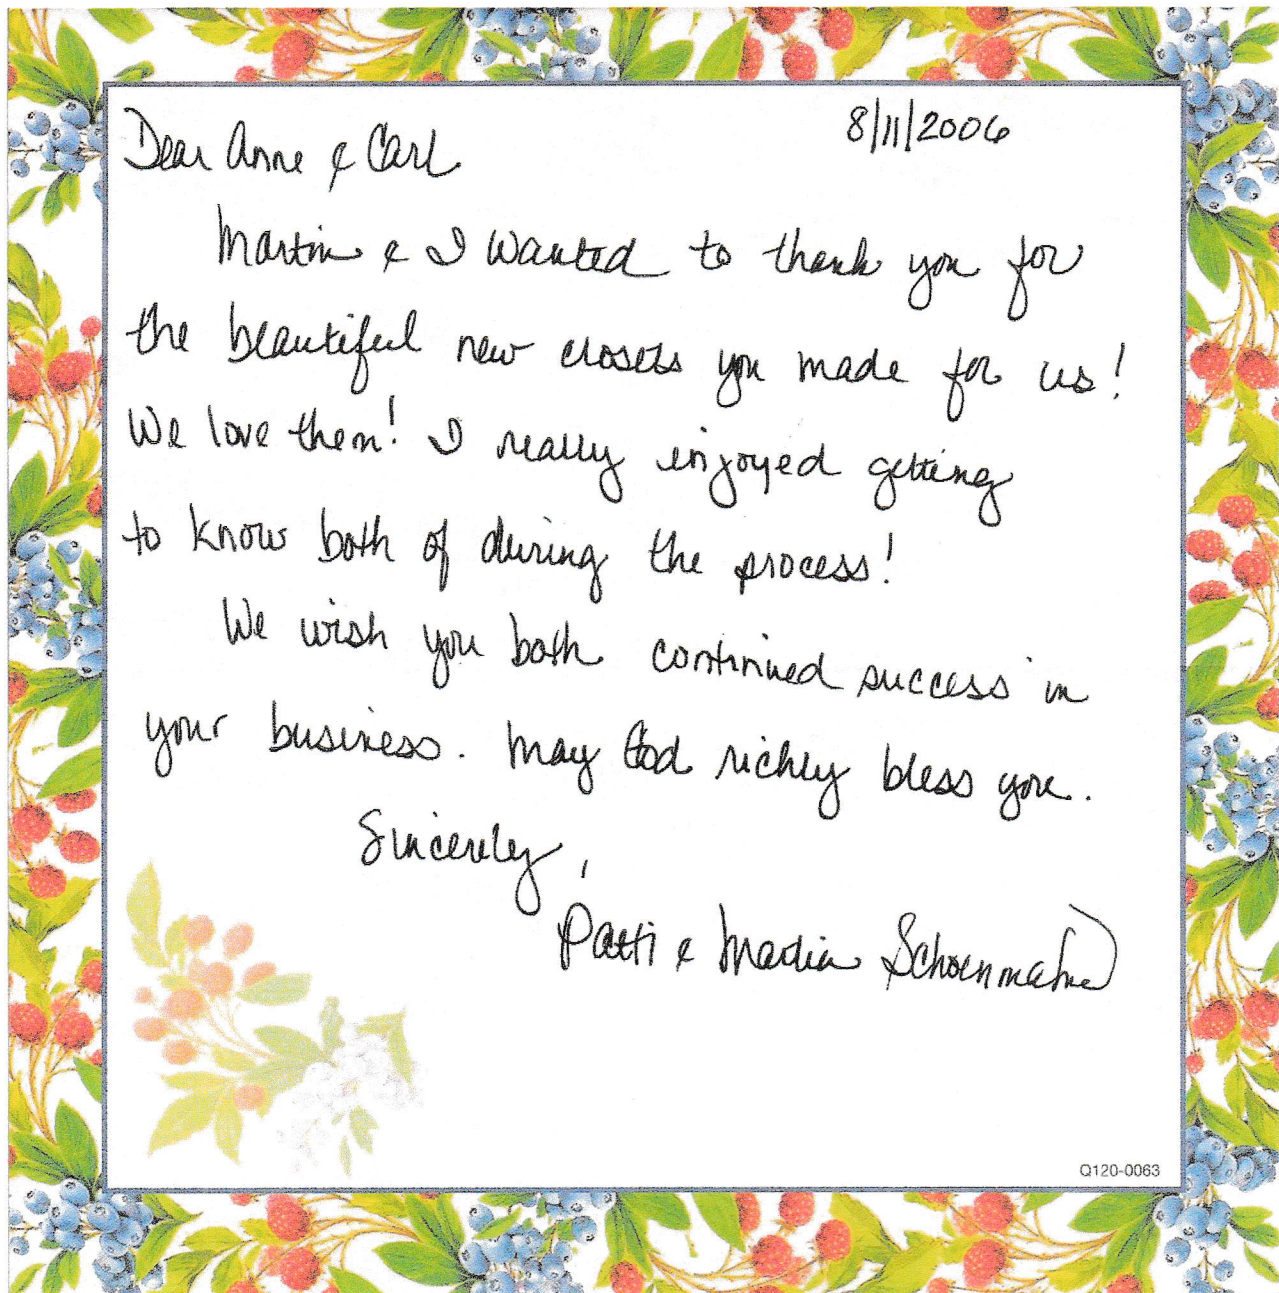 8/11/2006
Dear Anne & Carl
Martin & I wanted to thank you for
the beautiful new closets you made for us!
We love them! I really enjoyed getting
to know both of during the process!
We wish you both continued success in
your business. May God richly bless you.
Sincerely,
Patti & Martin
Q120-0063